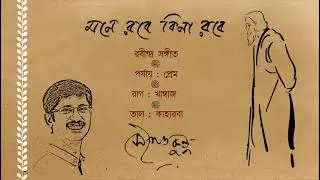 মনে রবে কিনা রবে
রবীন্দ্র সঙ্গীত
পর্যায় : প্রেম
রাগ : খাম্বাজ
তাল : কাহারবা